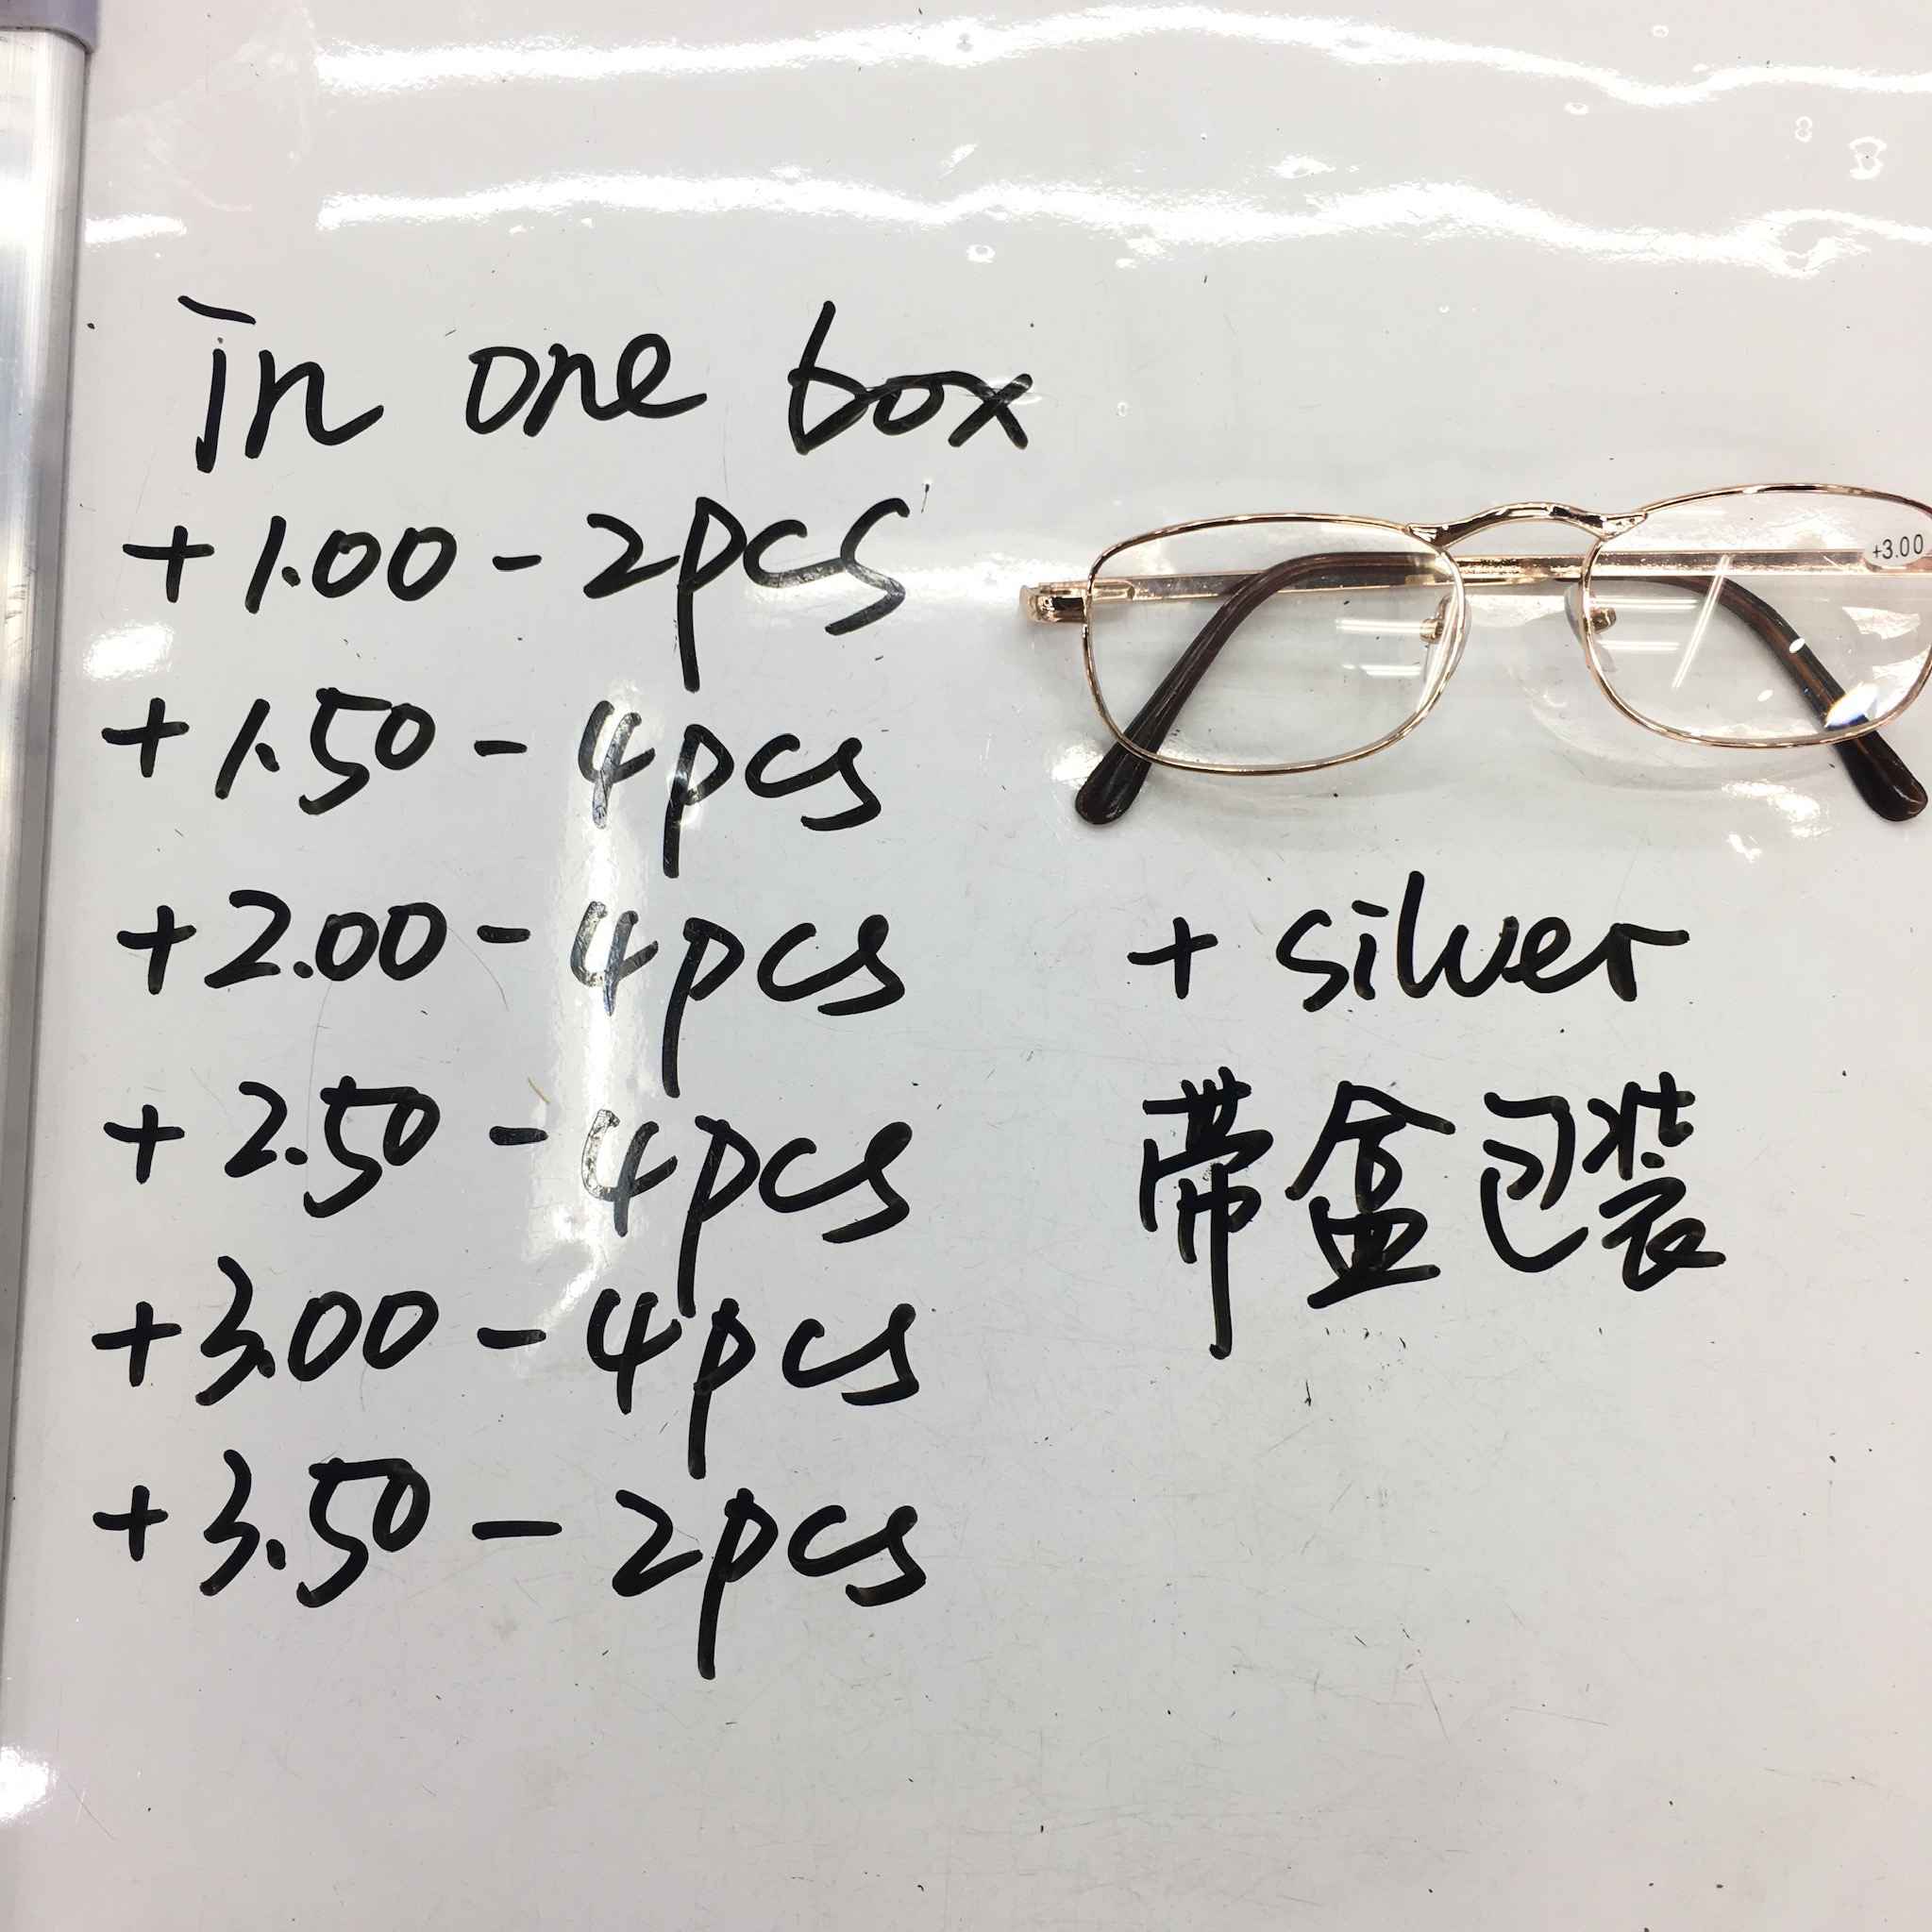 in one box
+1.00 - 2pcs
+1.50 - 4pcs
+2.00 - 4pcs
+2.50 - 4pcs
+3.00 - 4pcs
+3.50 - 2pcs
+3.00
+ silver
带盒包装